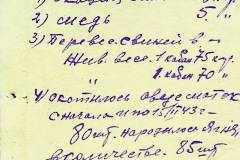 2) медь 5. "
3) Перевес. свиней в –
жив. весе. 1 кабан 75 кгр.
" 1 кабан 70 "
4) окотилось овцематок
с начала и по 15/III 43 г –
80 шт. народилось ягнят
в количестве. 85 шт